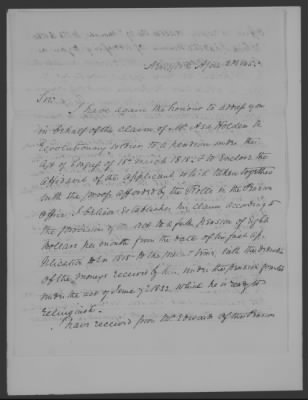 Sir.
I have again the honour to address you
in behalf of the claim of Mr Asa Holden to
Revolutionary services to a pension under the
Act of Congs of 18th March 1818 & to enclose the
affidavit of the applicant which taken together
with the proofs afforded by the Rolls in the Pension
Office, I believe establishes his claim according to
the provisions of an act to a full pension of Eight
Dollars per month from the date of his first ap
plication
of the moneys received by him under the pension granted
under the act of June 7th 1832, which he is ready to
relinquish.
I have received from Mr Edwards of the Pension